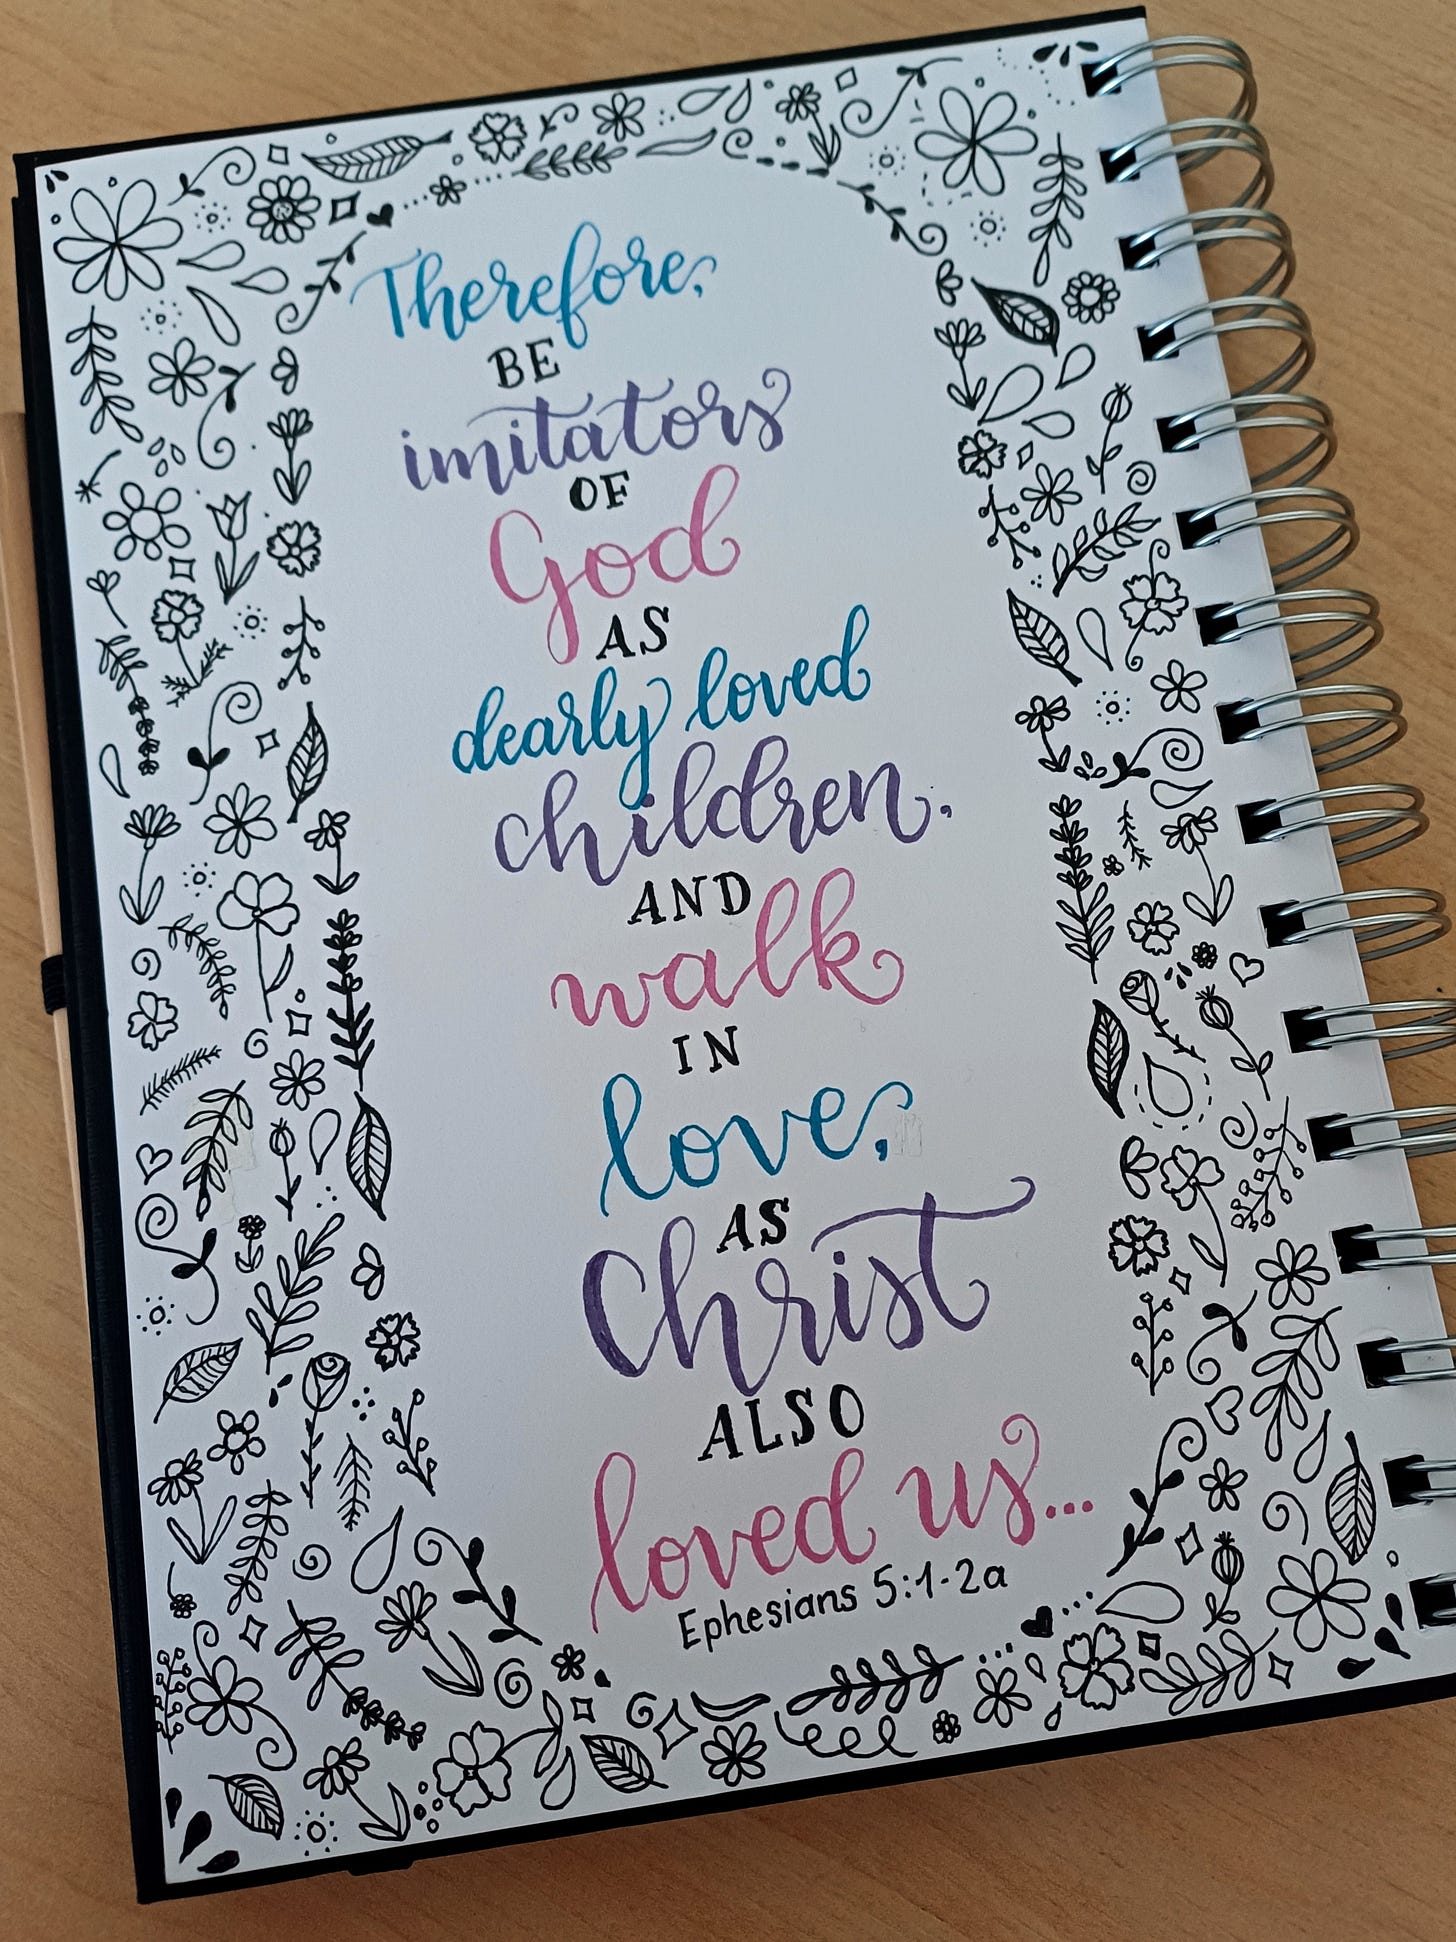 Therefore,
BE
imitators
OF
God
AS
dearly loved
children.
AND
walk
IN
love,
AS
Christ
ALSO
loved us...
Ephesians 5:1-2a